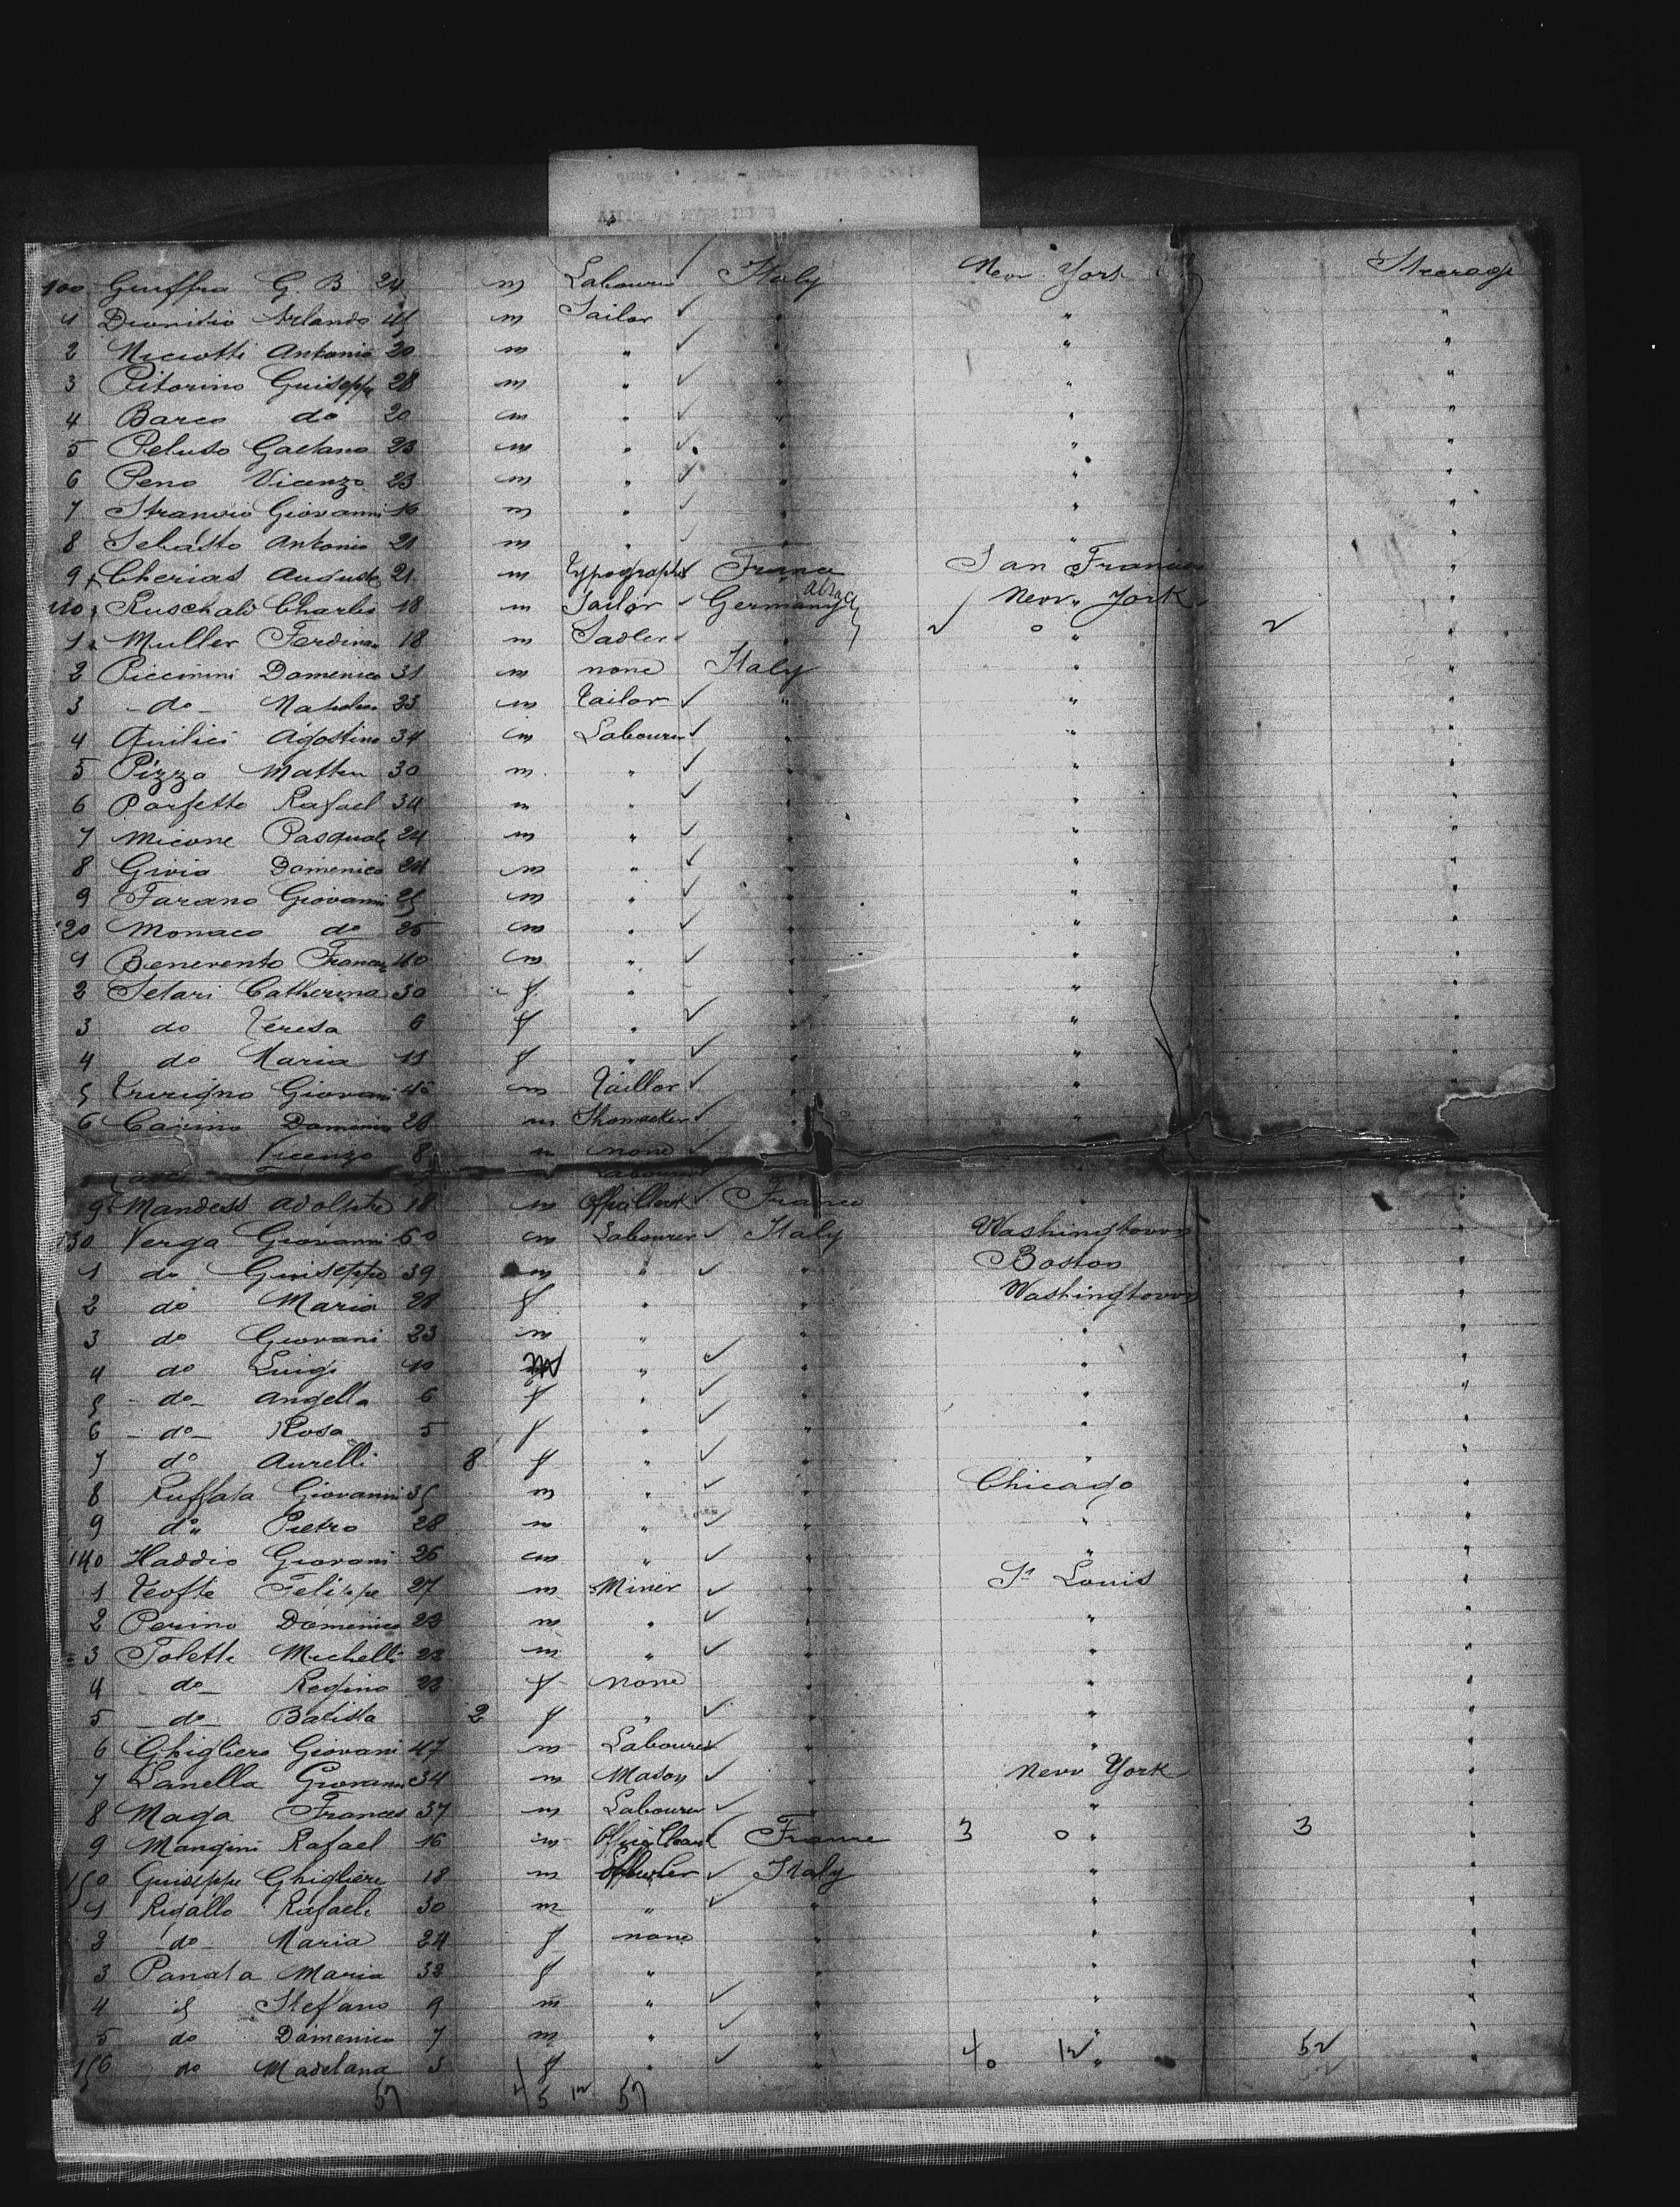 100 Giuffra G. B 24 m Labourer Italy New York Steerage
1 Dionisio Orlando 45 m Sailor ✓ " " "
2 Niciotti Antonio 20 m " ✓ " " "
3 Pitorino Guiseppe 28 m " ✓ " " "
4 Barco do 20 m " ✓ " " "
5 Peluso Gaetano 23 m " ✓ " " "
6 Peno Vicenzo 23 m " ✓ " " "
7 Giovanni 16 m " ✓ " " "
8 Sebasto Antonio 21 m " ✓ " " "
9 Cherias August 21 m Typographe ✓ France San Francisco "
110 Ruschald Charles 18 m Sailor ✓ Germany New York "
1 Muller Ferdinan 18 m Sadler ✓ " " "
2 Piccinini Domenico 31 m none Italy " "
3 - do - 23 m Tailor ✓ " " "
4 Quilici Agostino 34 m Labourer ✓ " " "
5 Pizzo Matteu 30 m " ✓ " " "
6 Parfetto Rafael 34 m " ✓ " " "
7 Micone Pasquale 24 m " ✓ " " "
8 Givia Domenico 24 m " ✓ " " "
9 Farano Giovanni 25 m " ✓ " " "
120 Monaco do 25 m " ✓ " " "
1 Benevento Frances 40 m " ✓ " " "
2 Setari Catherina 30 f " " " "
3 do Teresa 6 f " ✓ " " "
4 do Maria 11 f " ✓ " " "
5 Giovani 45 m Taillor ✓ " " "
6 Carino Domenico 28 m Shomacker ✓ " " "
Vicenzo 8 m none ✓
Labourer
9 Mandess Adolphe 18 m Office Clerk ✓ France " "
130 Verga Giovanni 60 m Labourer ✓ Italy Washingtown "
1 do Guiseppe 39 m " ✓ " Boston "
2 do Maria 28 f " " Washingtown "
3 do Giovani 23 m " ✓ " " "
4 do Luigi 10 m " ✓ " " "
5 - do - Angella 6 f " ✓ " " "
6 - do - Rosa 5 f " ✓ " " "
7 do Aurelli 8 f " ✓ " " "
8 Ruffata Giovanni 35 m " ✓ " Chicago "
9 do Pietro 28 m " ✓ " " "
140 Haddio Giovani 26 m " ✓ " " "
1 Teofte Felippe 27 m Miner ✓ " St Louis "
2 Perino Domenico 22 m " ✓ " " "
3 Toletti Michelli 22 m " ✓ " " "
4 - do - Regina 22 f none " " "
5 - do - Batista 2 f " ✓ " " "
6 Ghigliero Giovani 47 m Labourer ✓ " " "
7 Lanella Giovanni 34 m Mason ✓ " New York "
8 Maga Frances 37 m Labourer ✓ " " "
9 Mangini Rafael 16 m Office Clerk France 3 0 " 3 "
150 Guiseppe Ghigliere 18 m ✓ Italy " "
1 Rigallo Rafaeli 30 m " ✓ " " "
2 - do - Maria 24 f none " " "
3 Panata Maria 32 f " " " "
4 Stefano 9 m " ✓ " " "
5 do Domenico 7 m " ✓ " " "
156 do Madelana 3 f " ✓ " 40 12 " 52 "
57 45 12 57